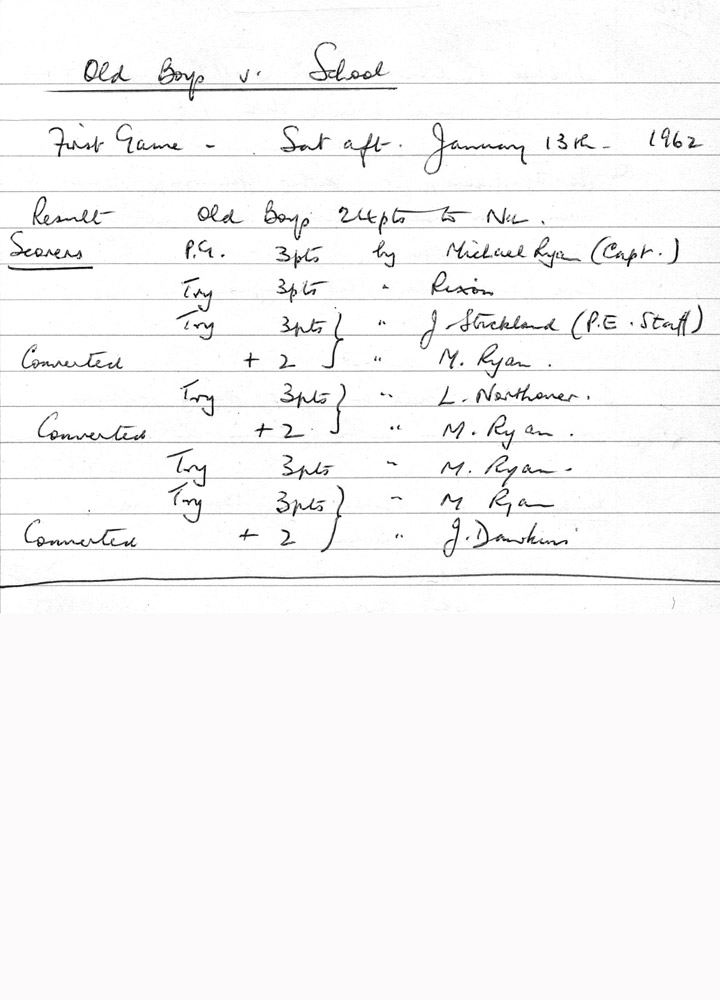 Old Boys v. School
First Game - Sat aft. January 13th - 1962
Result Old Boys 24pts to Nil.
Scorers P.G. 3pts by Michael Ryan (Capt.)
Try 3pts " Rixon
Try 3pts } " J. Strickland (P.E. Staff)
Converted + 2 } " M. Ryan.
Try 3pts } " L. Northover.
Converted + 2. } " M. Ryan.
Try 3pts " M. Ryan.
Try 3pts } " M Ryan
Converted + 2 } " J. Dawkins